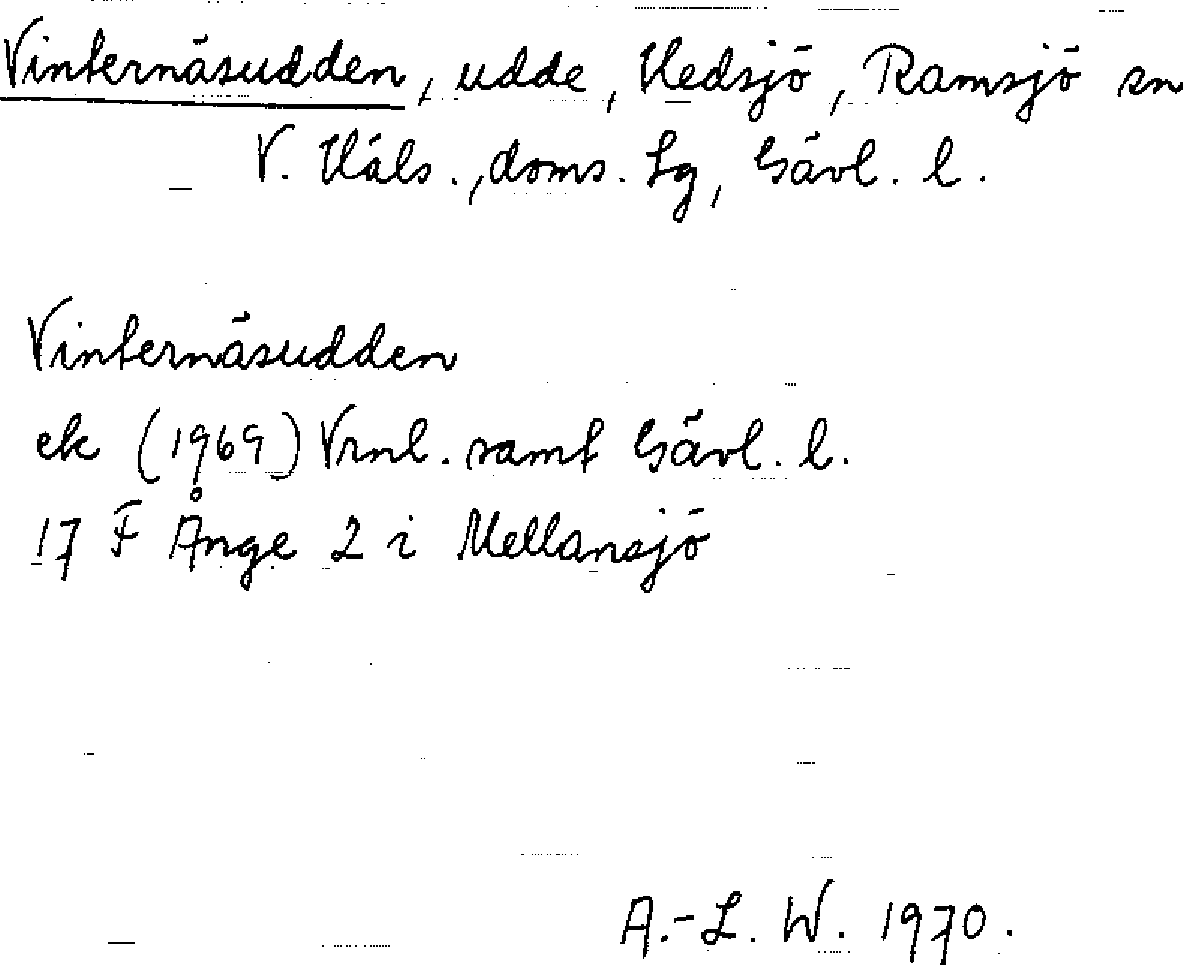 Vinternäsudden, udde, Hedsjö, Ramsjö sn
V. Häls., doms. Lg, Gävl. l.
Vinternäsudden
ek (1969) Vrnl. samt Gävl. l.
17 F Ånge 2 i Mellansjö
A.-L. W. 1970.